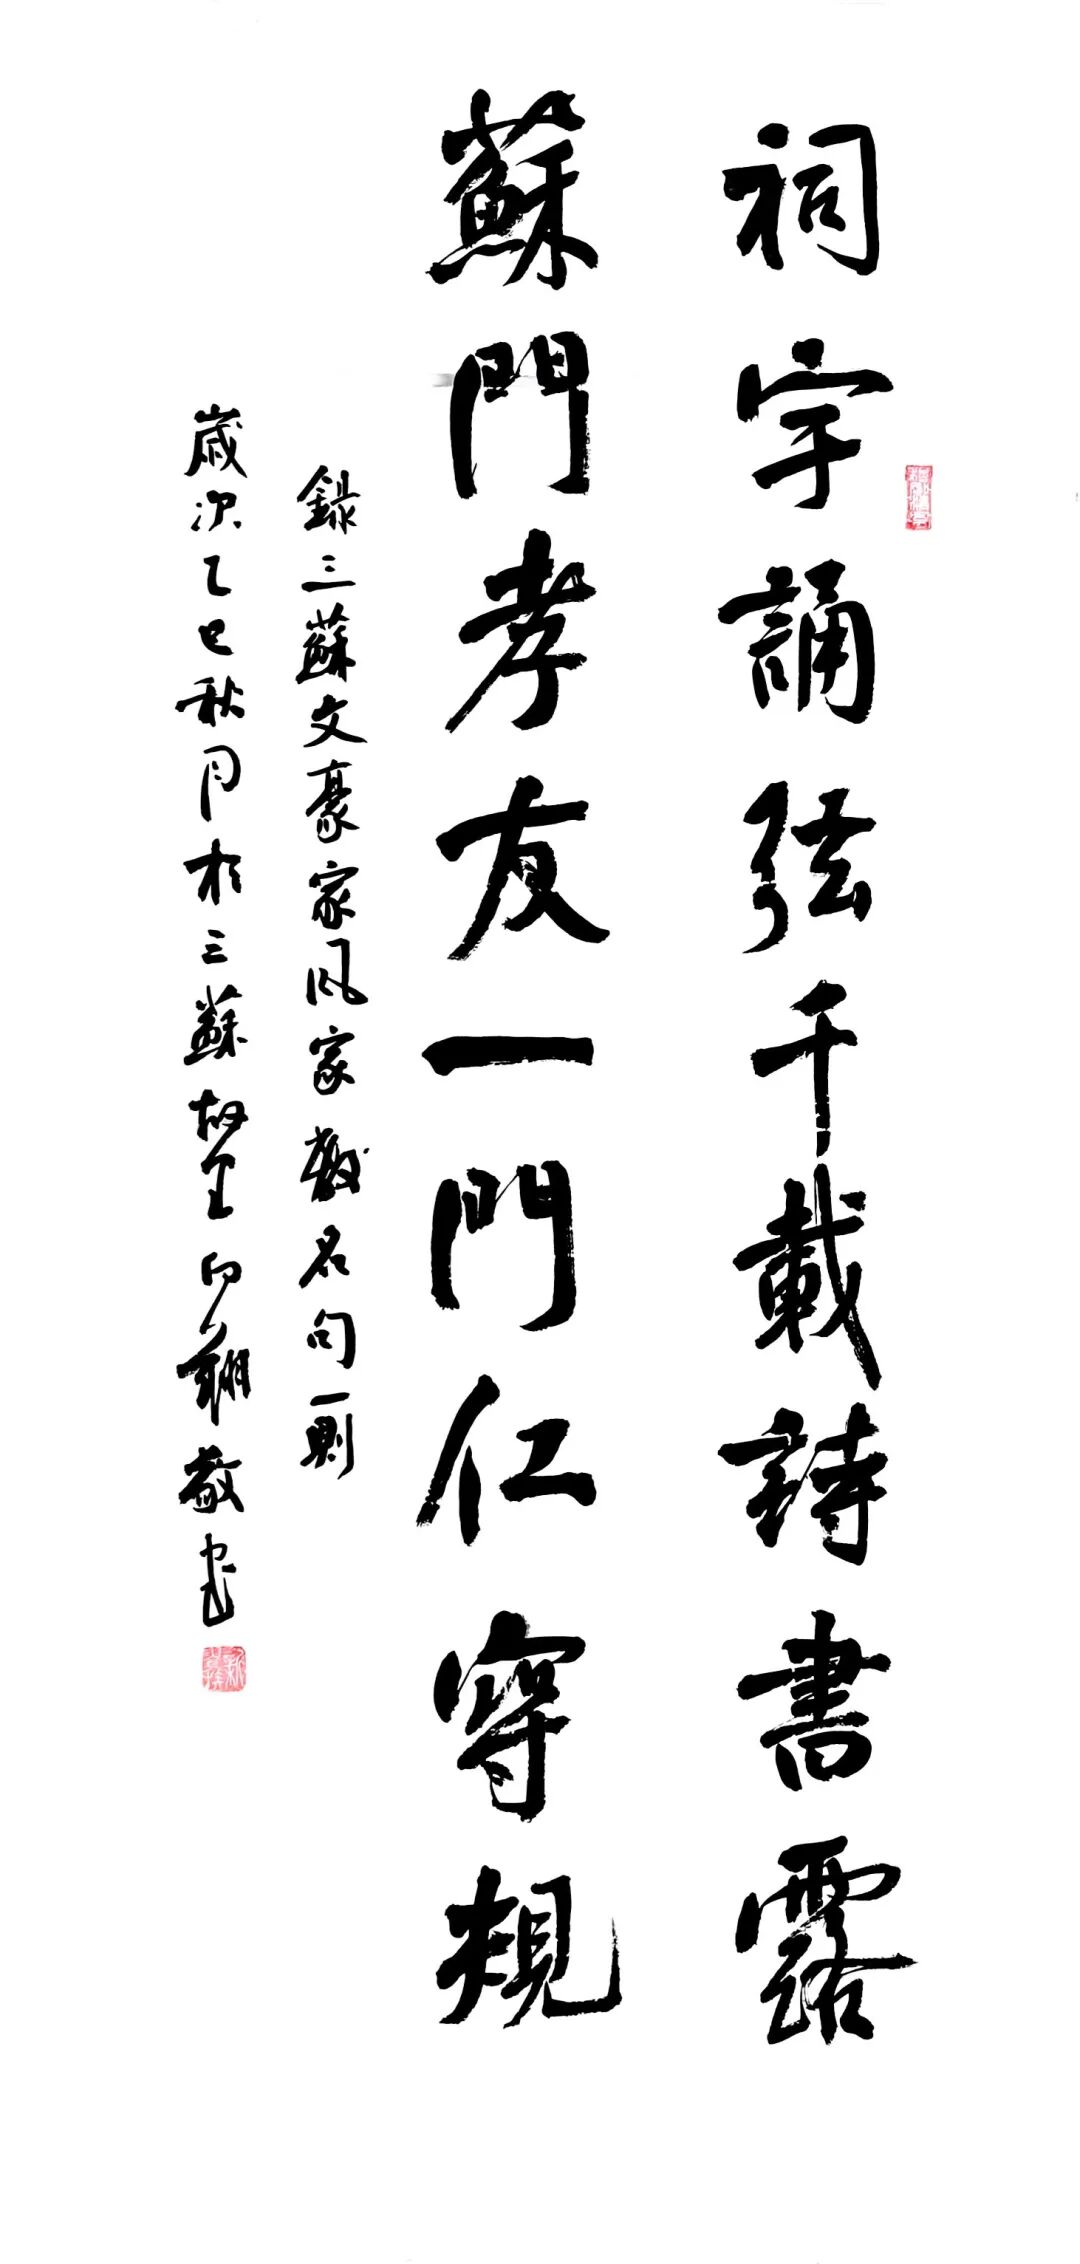 祠宇誦弦千載詩書露
蘇門孝友一門仁規
錄三蘇文豪家風家教名句一則
歲次乙巳秋月於三蘇故里敬書